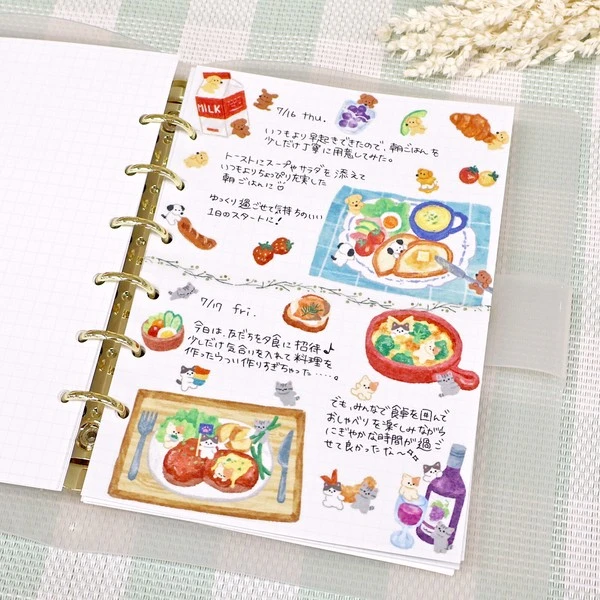 MILK
7/16 thu.
いつもより早起きできたので、朝ごはんを
少しだけ丁寧に用意してみた。
トーストにスープやサラダを添えて
いつもよりちょっぴり充実した
朝ごはんに
ゆっくり過ごせて気持ちのいい
1日のスタートに!
7/17 fri.
今日は、友だちを夕食に招待♪
少しだけ気合りを入れて料理を
作ったらつい作りすぎちゃった……。
でも、みんなで食卓を囲んで
おしゃべりを楽しみながら
にぎやかな時間が過ご
せて良かったな〜